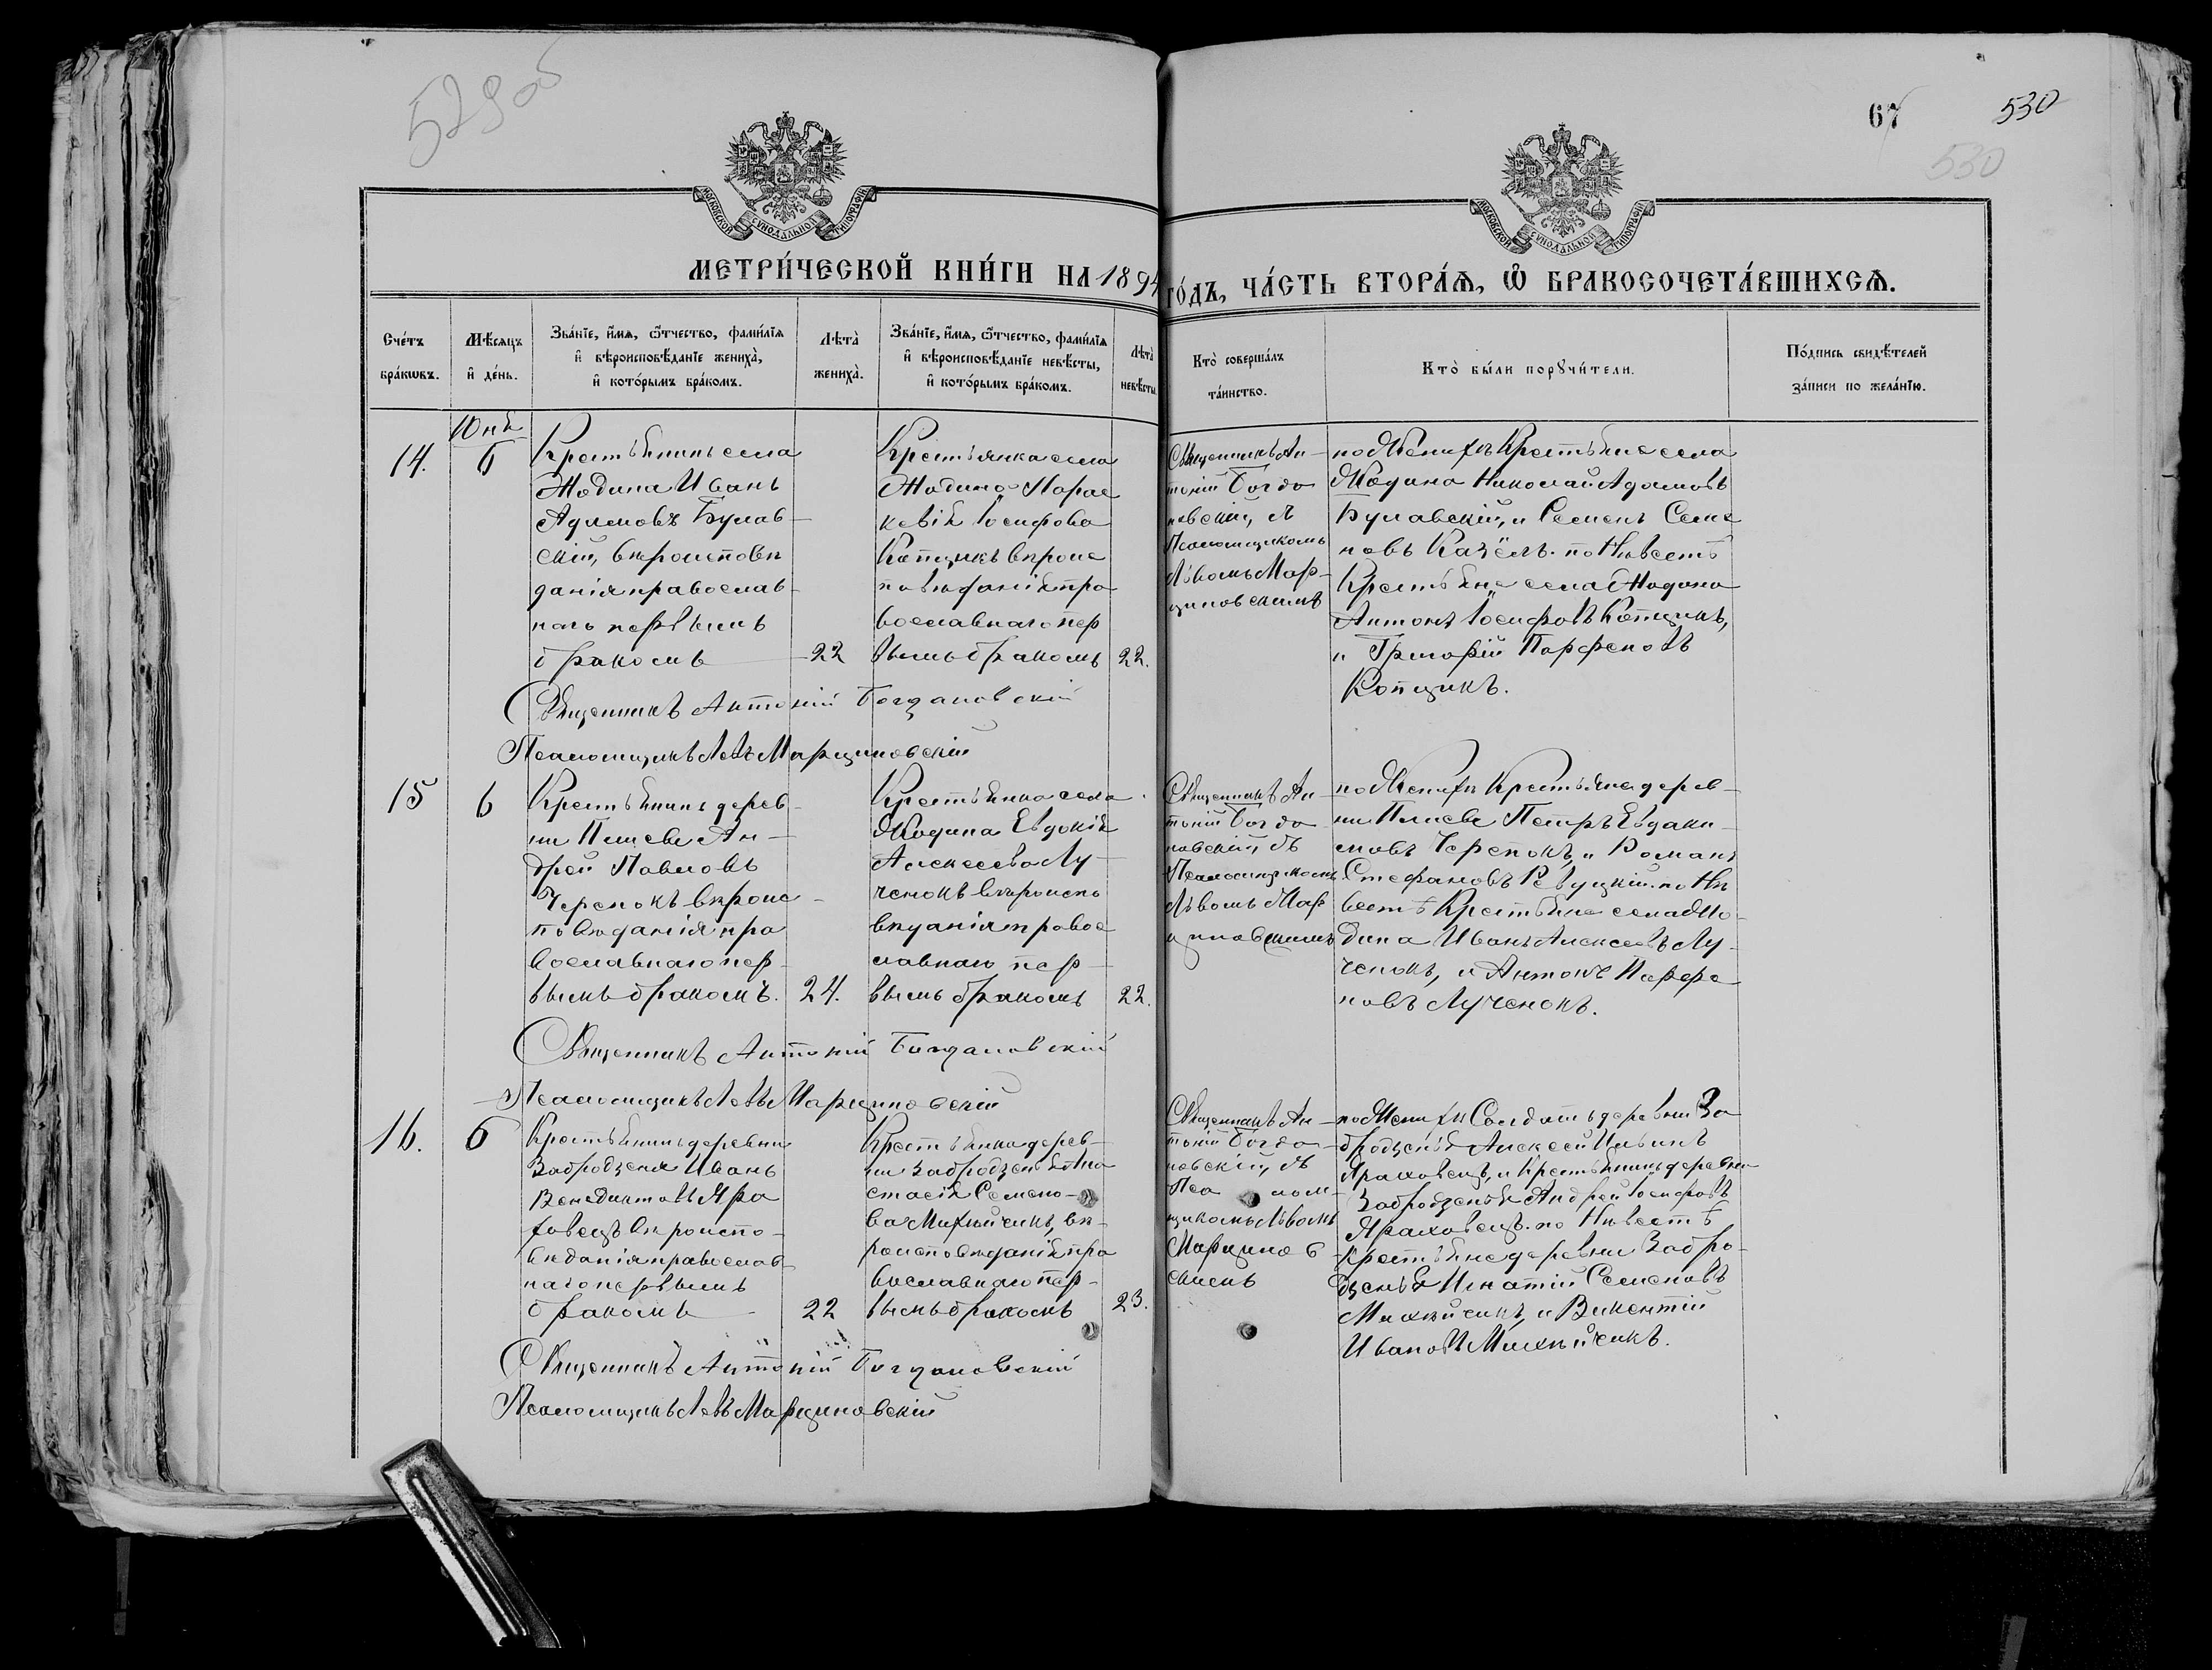 529об
67
530
530
МОСКОВСКОЙ СѴНОДАЛЬНОЙ ТИПОГРАФІИ
МОСКОВСКОЙ СѴНОДАЛЬНОЙ ТИПОГРАФІИ
МЕТРИ́ЧЕСКОЙ КНИ́ГИ НА 1894
ГО́ДЪ, ЧА́СТЬ ВТОРА́Ѧ, Ѡ҆ БРАКОСОЧЕТА́ВШИХСѦ.
Сче́тъ
бра́кѡвъ.
Мѣ́сяцъ
и҆ де́нь.
Зва́нїе, и҆́мѧ, ѻ҆́тчество, фами́лїѧ
и҆ вѣроисповѣ́данїе жениха̀,
и҆ кото́рымъ бра́комъ.
Лѣта̀
жениха̀.
Зва́нїе, и҆́мѧ, ѻ҆́тчество, фами́лїѧ
и҆ вѣроисповѣ́данїе невѣ́сты,
и҆ кото́рымъ бра́комъ.
Лѣта̀
невѣ́сты
Кто̀ соверша́лъ
та́инство.
Кто̀ бы́ли порꙋчи́тели.
По́дпись свидѣ́телей
за́писи по жела́нїю.
14.
Юнь
6
Крестьянинъ села
Жодина Иванъ
Адамовъ Булав-
скій, вѣроисповѣ
данія православ-
наго первымъ
бракомъ
22
Крестьянка села
Жодина Парас
кевія Іосифова
Копщикъ вѣроис
повѣданія пра
вославнаго пер
вымъ бракомъ
22.
Священникъ Ан-
тоній Богда
новскій, съ
Псаломщикомъ
Львомъ Мар-
циновскимъ
по Женихѣ Крестьяне села
Жодина Николай Адамовъ
Булавскій, и Семенъ Семе
новъ Казёлъ. по Нѣвестѣ
Крестьяне села Жодина
Антонъ Іосифовъ Копщикъ,
и Григорій Парфеновъ
Копщикъ.
Священникъ Антоній Богдановскій
Псаломщикъ Левъ Марциновскій
15
6
Крестьянинъ дерев-
ни Ан-
дрей Павловъ
Черепокъ вѣроис-
повѣданія пра
вославнаго пер-
вымъ бракомъ.
24.
Крестьянка села
Жодина Евдокія
Алексеева Лу-
ченокъ вѣроиспо
вѣданія правос
лавнаго пер-
вымъ бракомъ
22.
Священникъ Ан-
тоній Богда
новскій, съ
Псаломщикомъ
Львомъ Мар
циновскимъ
по Женихѣ Крестьяне дерев-
ни Петръ Евдаки-
мовъ Черепокъ, и Романъ
Стефановъ Ревуцкій. по Нѣ
вестѣ Крестьяне села Жо-
дина Иванъ Алексеевъ Лу-
ченокъ, и Антонъ Парфе
новъ Лученокъ.
Священникъ Антоній Богдановскій
Псаломщикъ Левъ Марциновскій
16.
6
Крестьянинъ деревни
Забродзенья Иванъ
Венедиктовъ Яра
ховецъ вѣроиспо-
вѣданія православ-
наго первымъ
бракомъ
22
Крестьянка дерев-
ни Забродзенья Ана
стасія Семено-
ва Михнійчикъ, вѣ-
роисповѣданія пра
вославнаго пер-
вымъ бракомъ
23.
Священникъ Ан-
тоній Богда-
новскій, съ
Пса лом-
щикомъ Львомъ
Марцинов-
скимъ
по Женихѣ Солдатъ деревни За
бродзенья Алексей Ильинъ
Яраховецъ, и Крестьянинъ деревни
Забродзенья Андрей Іосифовъ
Яраховецъ. по Нѣвестѣ
Крестьяне деревни Забро-
дзенья Игнатій Семеновъ
Михнійчикъ, и Викентій
Ивановъ Михнійчикъ.
Священникъ Антоній Богдановскій
Псаломщикъ Левъ Марциновскій